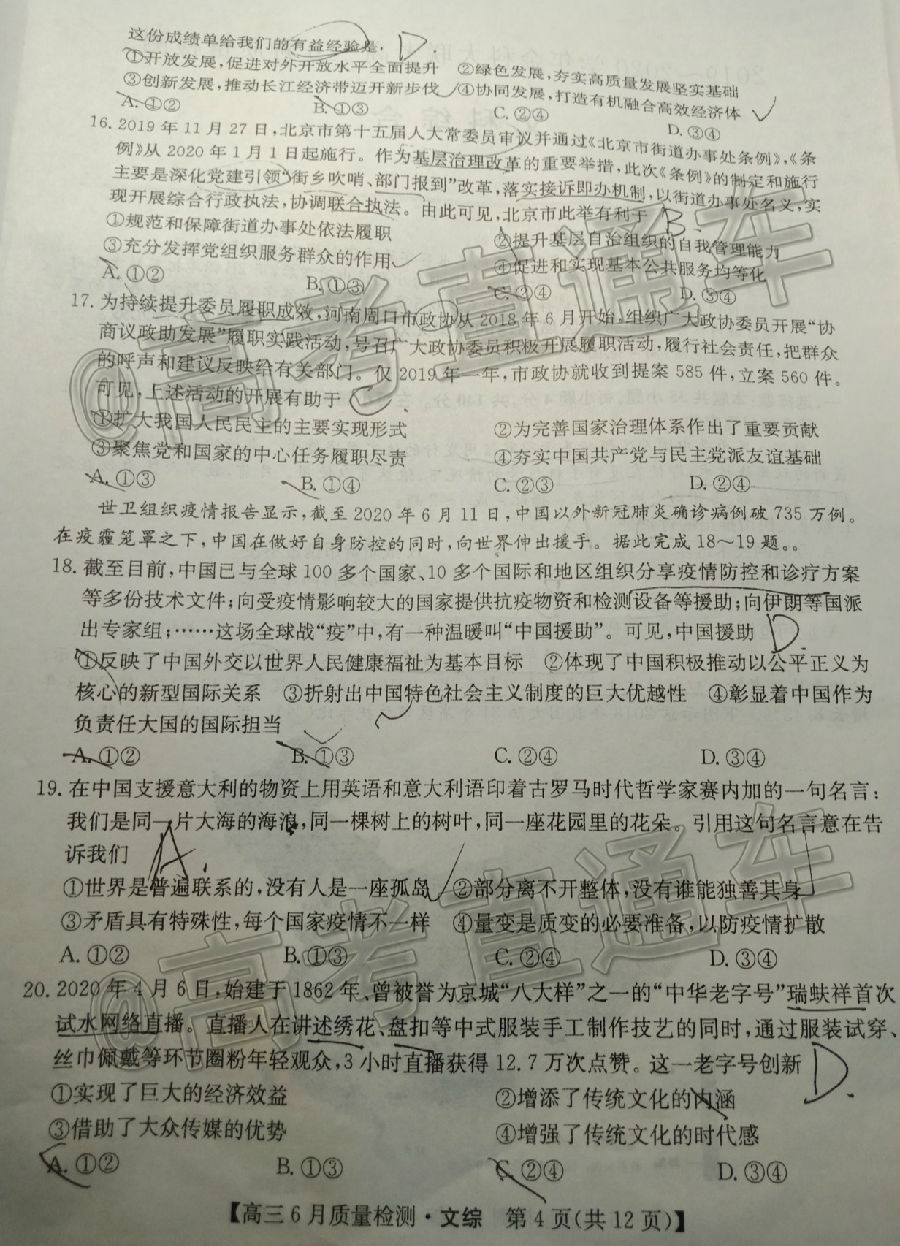 这份成绩单给我们的有益经验是, D.
①开放发展,促进对外开放水平全面提升 ②绿色发展,夯实高质量发展坚实基础
③创新发展,推动长江经济带迈开新步伐 ④协同发展,打造有机融合高效经济体
A.①② B.①③ C.②④ D.③④
16. 2019年11月27日,北京市第十五届人大常委员审议并通过《北京市街道办事处条例》,《条
例》从2020年1月1日起施行。作为基层治理改革的重要举措,此次《条例》的制定和施行
主要是深化党建引领“街乡吹哨、部门报到”改革,落实接诉即办机制,以街道办事处名义,实
现开展综合行政执法,协调联合执法。由此可见,北京市此举有利于 B.
①规范和保障街道办事处依法履职 ②提升基层自治组织的自我管理能力
③充分发挥党组织服务群众的作用 ④促进和实现基本公共服务均等化
A.①② B.①③ C.②④ D.③④
17. 为持续提升委员履职成效,河南周口市政协从2018年6月开始,组织广大政协委员开展“协
商议政助发展”履职实践活动,号召广大政协委员积极开展履职活动,履行社会责任,把群众
的呼声和建议反映给有关部门。仅2019年一年,市政协就收到提案585件,立案560件。
可见,上述活动的开展有助于
①扩大我国人民民主的主要实现形式 ②为完善国家治理体系作出了重要贡献
③聚焦党和国家的中心任务履职尽责 ④夯实中国共产党与民主党派友谊基础
A.①③ B.①④ C.②③ D.②④
世卫组织疫情报告显示,截至2020年6月11日,中国以外新冠肺炎确诊病例破735万例。
在疫霾笼罩之下,中国在做好自身防控的同时,向世界伸出援手。据此完成18~19题。。
18. 截至目前,中国已与全球100多个国家、10多个国际和地区组织分享疫情防控和诊疗方案
等多份技术文件;向受疫情影响较大的国家提供抗疫物资和检测设备等援助;向伊朗等国派
出专家组;……这场全球战“疫”中,有一种温暖叫“中国援助”。可见,中国援助 D.
①反映了中国外交以世界人民健康福祉为基本目标 ②体现了中国积极推动以公平正义为
核心的新型国际关系 ③折射出中国特色社会主义制度的巨大优越性 ④彰显着中国作为
负责任大国的国际担当
A.①② B.①③ C.②④ D.③④
19. 在中国支援意大利的物资上用英语和意大利语印着古罗马时代哲学家赛内加的一句名言:
我们是同一片大海的海浪,同一棵树上的树叶,同一座花园里的花朵。引用这句名言意在告
诉我们 A.
①世界是普遍联系的,没有人是一座孤岛 ②部分离不开整体,没有谁能独善其身
③矛盾具有特殊性,每个国家疫情不一样 ④量变是质变的必要准备,以防疫情扩散
A.①② B.①③ C.②④ D.③④
20. 2020年4月6日,始建于1862年、曾被誉为京城“八大样”之一的“中华老字号”瑞蚨祥首次
试水网络直播。直播人在讲述绣花、盘扣等中式服装手工制作技艺的同时,通过服装试穿、
丝巾佩戴等环节圈粉年轻观众,3小时直播获得12.7万次点赞。这一老字号创新 D.
①实现了巨大的经济效益 ②增添了传统文化的内涵
③借助了大众传媒的优势 ④增强了传统文化的时代感
A.①② B.①③ C.②④ D.③④
【高三6月质量检测·文综 第4页(共12页)】
@高考直通车
@高考直通车